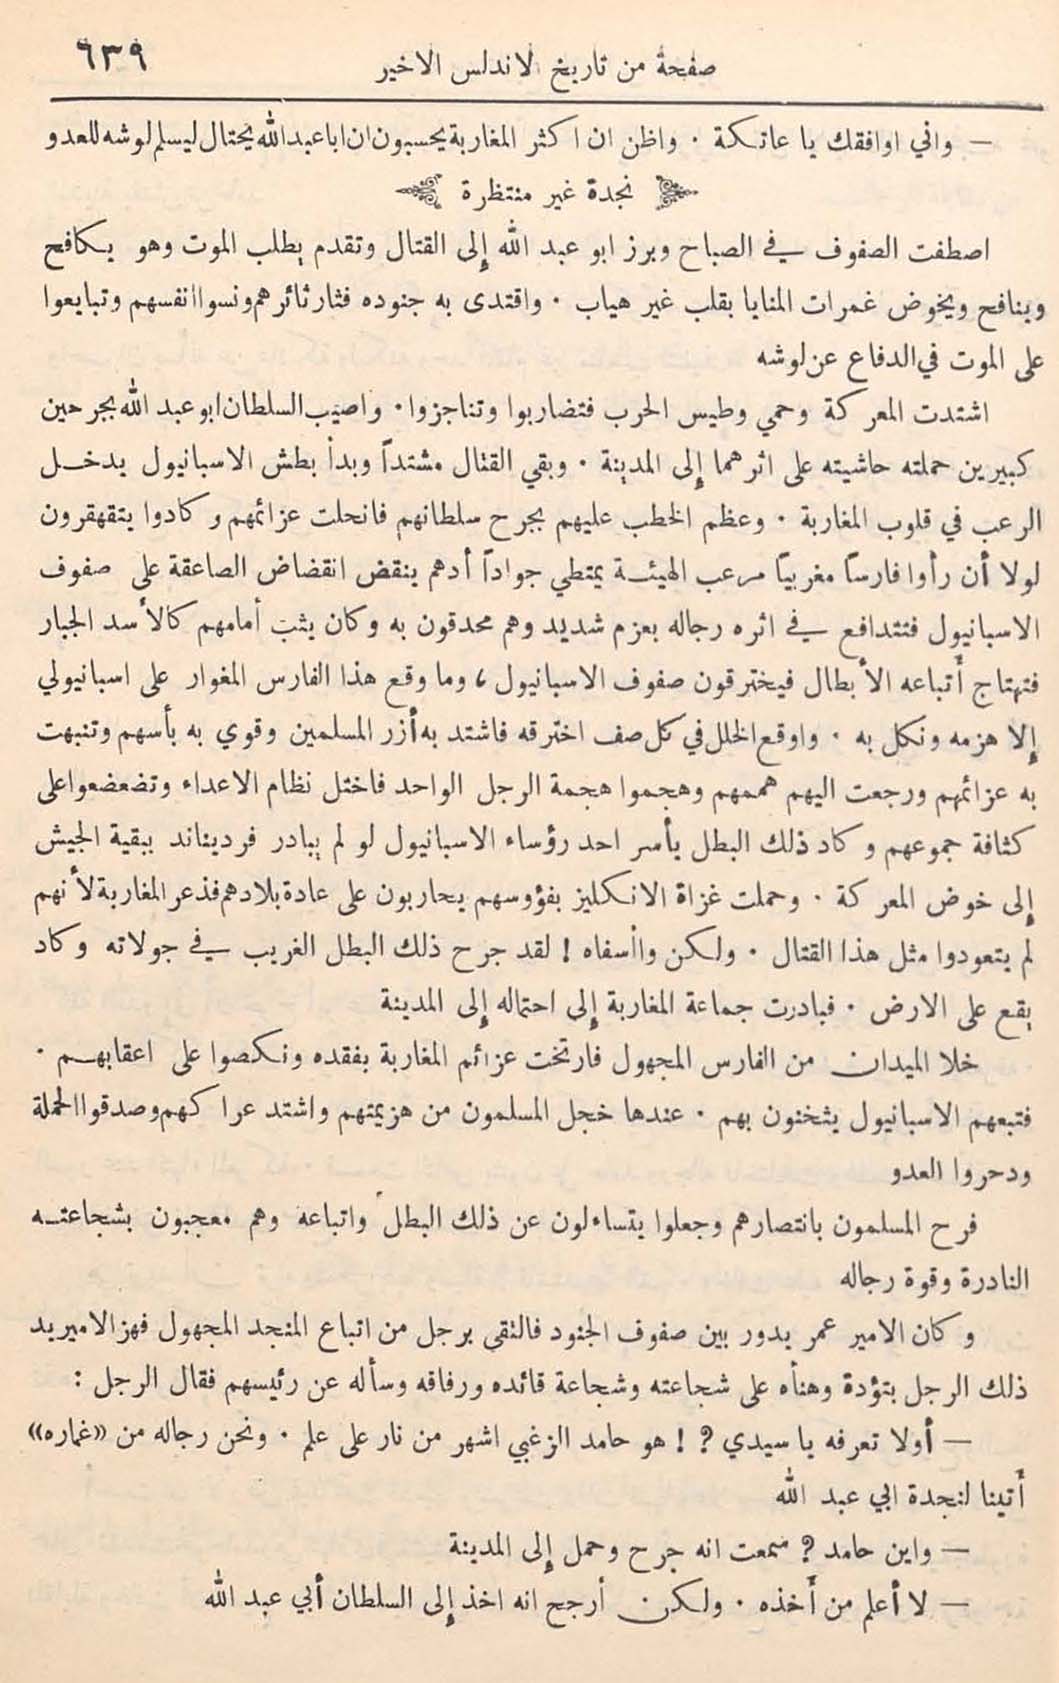 صفحة من تاريخ الاندلس الاخير ٦٣٩
— واني اوافقك يا عاتكة . واظن ان اكثر المغاربة يحسبون ان ابا عبد الله يحتال ليسلم لوشه للعدو
نجدة غير منتظرة
اصطفت الصفوف في الصباح وبرز ابو عبد الله إلى القتال وتقدم يطلب الموت وهو يكافح
وينافح ويخوض غمرات المنايا بقلب غير هياب . واقتدى به جنوده فثار ثائرهم ونسوا انفسهم وتبايعوا
على الموت في الدفاع عن لوشه
اشتدت المعركة وحمي وطيس الحرب فتضاربوا وتناجزوا . واصيب السلطان ابو عبد الله بجرحين
كبيرين حملته حاشيته على اثرهما إلى المدينة . وبقي القتال مشتداً وبدأ بطش الاسبانيول يدخل
الرعب في قلوب المغاربة . وعظم الخطب عليهم بجرح سلطانهم فانحلت عزائمهم وكادوا يتقهقرون
لولا أن رأوا فارساً مغربياً مرعب الهيئة يمتطي جواداً أدهم ينقض انقضاض الصاعقة على صفوف
الاسبانيول فتتدافع في اثره رجاله بعزم شديد وهم محدقون به وكان يثب أمامهم كالأسد الجبار
فتهتاج أتباعه الأبطال فيخترقون صفوف الاسبانيول ، وما وقع هذا الفارس المغوار على اسبانيولي
إلا هزمه ونكل به . واوقع الخلل في كل صف اخترقه فاشتد به أزر المسلمين وقوي به بأسهم وتنبهت
به عزائمهم ورجعت اليهم هممهم وهجموا هجمة الرجل الواحد فاختل نظام الاعداء وتضعضعوا على
كثافة جموعهم وكاد ذلك البطل يأسر احد رؤساء الاسبانيول لو لم يبادر فرديناند ببقية الجيش
إلى خوض المعركة . وحملت غزاة الانكليز بفؤوسهم يحاربون على عادة بلادهم فذعر المغاربة لأنهم
لم يتعودوا مثل هذا القتال . ولكن واأسفاه ! لقد جرح ذلك البطل الغريب في جولاته وكاد
يقع على الارض . فبادرت جماعة المغاربة إلى احتماله إلى المدينة
خلا الميدان من الفارس المجهول فارتخت عزائم المغاربة بفقده ونكصوا على اعقابهم .
فتبعهم الاسبانيول يثخنون بهم . عندها خجل المسلمون من هزيمتهم واشتد عراكهم وصدقوا الحملة
ودحروا العدو
فرح المسلمون بانتصارهم وجعلوا يتساءلون عن ذلك البطل واتباعه وهم معجبون بشجاعته
النادرة وقوة رجاله
وكان الامير عمر يدور بين صفوف الجنود فالتقى برجل من اتباع المنجد المجهول فهز الامير يد
ذلك الرجل بتؤدة وهنأه على شجاعته وشجاعة قائده ورفاقه وسأله عن رئيسهم فقال الرجل :
— أولا تعرفه يا سيدي ? ! هو حامد الزغبي اشهر من نار على علم . ونحن رجاله من «غماره»
أتينا لنجدة ابي عبد الله
— واين حامد ? سمعت انه جرح وحمل إلى المدينة
— لا أعلم من أخذه . ولكن أرجح انه اخذ إلى السلطان أبي عبد الله